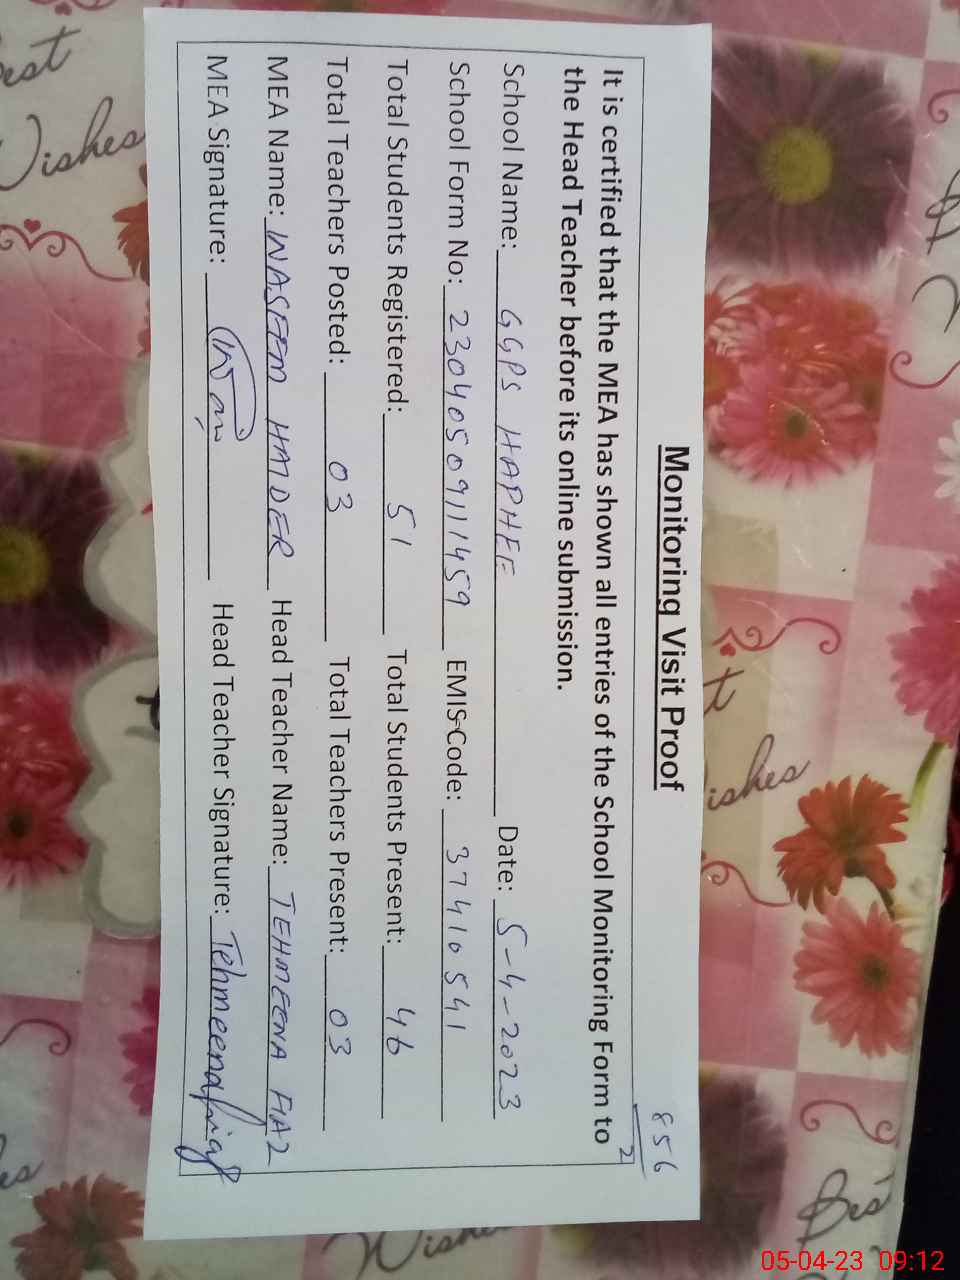 856
2
Monitoring Visit Proof
It is certified that the MEA has shown all entries of the School Monitoring Form to
the Head Teacher before its online submission.
School Name: GGPS HAPHEE Date: 5-4-2023
School Form No: 23040509111459 EMIS Code: 37410541
Total Students Registered: 51 Total Students Present: 46
Total Teachers Posted: 03 Total Teachers Present: 03
MEA Name: WASEEM HAIDER Head Teacher Name: TEHMEENA FIAZ
MEA Signature: Head Teacher Signature: Tehmeena
est
Wishes
ishes
Bes
Wishe
es
05-04-23 09:12